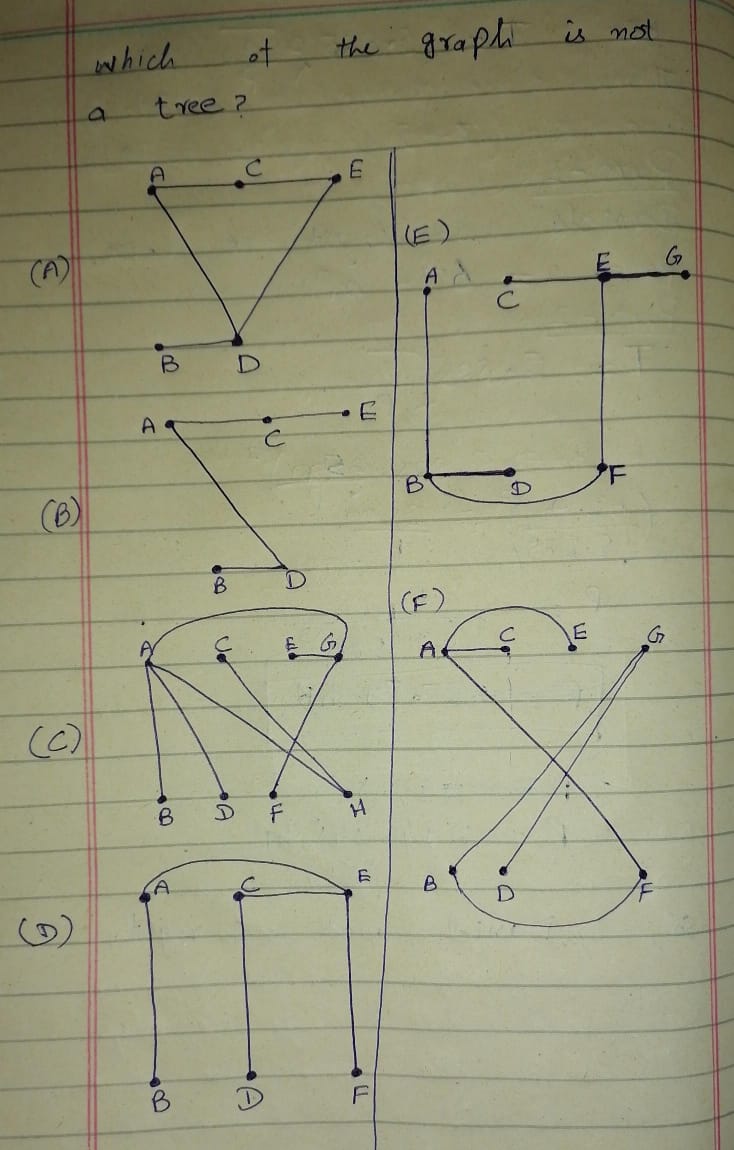 which of the graph is not
a tree?
(A)
A C E
B D
(B)
A C E
B D
(C)
A C E G
B D F H
(D)
A C E
B D F
(E)
A C E G
B D F
(F)
A C E G
B D F